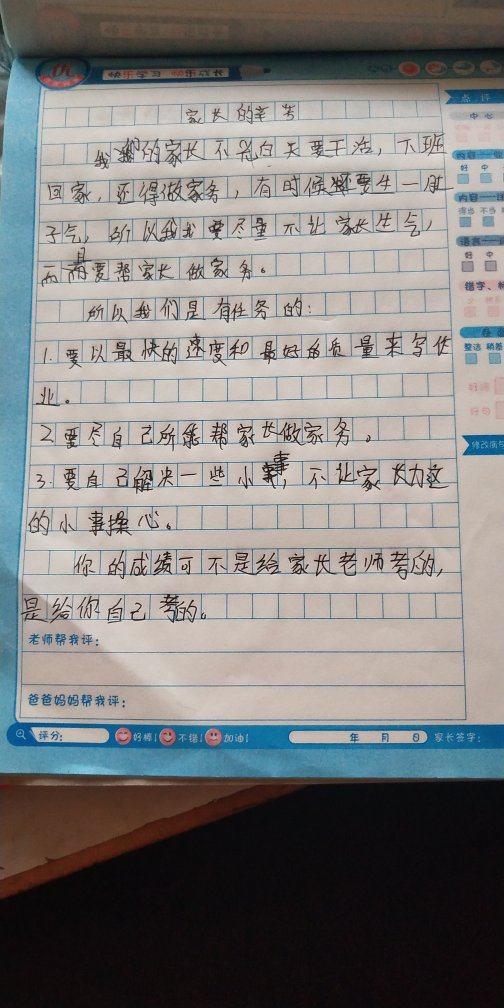 快乐学习 快乐成长
点评
家长的辛苦
中心
我们的家长不光白天要干活，下班
内容
好 中
回家，还得做家务，有时候还要生一肚
内容
得当 不当
子气，所以我要尽量不让家长生气，
语言
好 中
而且要帮家长做家务。
错字、
所以我们是有任务的：
整洁 稍差
1.要以最快的速度和最好的质量来写作
业。
好词
好句
2.要尽自己所能帮家长做家务。
修改病句
3.要自己解决一些小事，不让家长为这
的小事操心。
你的成绩可不是给家长老师考的，
是给你自己考的。
老师帮我评：
爸爸妈妈帮我评：
评分： 好棒！ 不错！ 加油！ 年 月 日 家长签字：